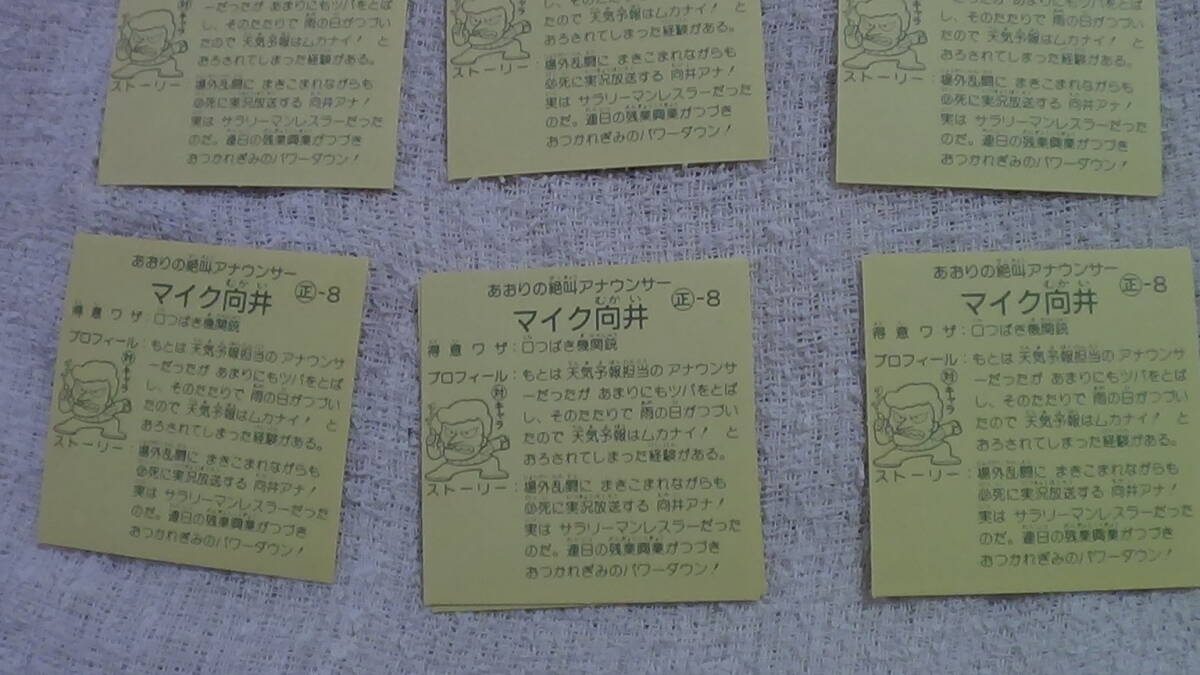 ーだったが あまりにもツバをとば
し、そのたたりで 雨の日がつづい
たので 天気予報はムカナイ! と
おろされてしまった経験がある。
ストーリー:場外乱闘に まきこまれながらも
必死に実況放送する 向井アナ!
実は サラリーマンレスラーだった
のだ。連日の残業興業がつづき
おつかれぎみのパワーダウン!
対
キャラ
ーだったが あまりにもツバをとば
し、そのたたりで 雨の日がつづい
たので 天気予報はムカナイ! と
おろされてしまった経験がある。
ストーリー:場外乱闘に まきこまれながらも
必死に実況放送する 向井アナ!
実は サラリーマンレスラーだった
のだ。連日の残業興業がつづき
おつかれぎみのパワーダウン!
し、そのたたりで 雨の日がつづい
たので 天気予報はムカナイ! と
おろされてしまった経験がある。
ストーリー:場外乱闘に まきこまれながらも
必死に実況放送する 向井アナ!
実は サラリーマンレスラーだった
のだ。連日の残業興業がつづき
おつかれぎみのパワーダウン!
あおりの絶叫アナウンサー
マイク向井 正-8
得意ワザ:口つばき機関銃
プロフィール:もとは 天気予報担当の アナウンサ
ーだったが あまりにもツバをとば
し、そのたたりで 雨の日がつづい
たので 天気予報はムカナイ! と
おろされてしまった経験がある。
対
キャラ
ストーリー:場外乱闘に まきこまれながらも
必死に実況放送する 向井アナ!
実は サラリーマンレスラーだった
のだ。連日の残業興業がつづき
おつかれぎみのパワーダウン!
あおりの絶叫アナウンサー
マイク向井 正-8
得意ワザ:口つばき機関銃
プロフィール:もとは 天気予報担当の アナウンサ
ーだったが あまりにもツバをとば
し、そのたたりで 雨の日がつづい
たので 天気予報はムカナイ! と
おろされてしまった経験がある。
対
キャラ
ストーリー:場外乱闘に まきこまれながらも
必死に実況放送する 向井アナ!
実は サラリーマンレスラーだった
のだ。連日の残業興業がつづき
おつかれぎみのパワーダウン!
あおりの絶叫アナウンサー
マイク向井 正-8
得意ワザ:口つばき機関銃
プロフィール:もとは 天気予報担当の アナウンサ
ーだったが あまりにもツバをとば
し、そのたたりで 雨の日がつづい
たので 天気予報はムカナイ! と
おろされてしまった経験がある。
対
キャラ
ストーリー:場外乱闘に まきこまれながらも
必死に実況放送する 向井アナ!
実は サラリーマンレスラーだった
のだ。連日の残業興業がつづき
おつかれぎみのパワーダウン!